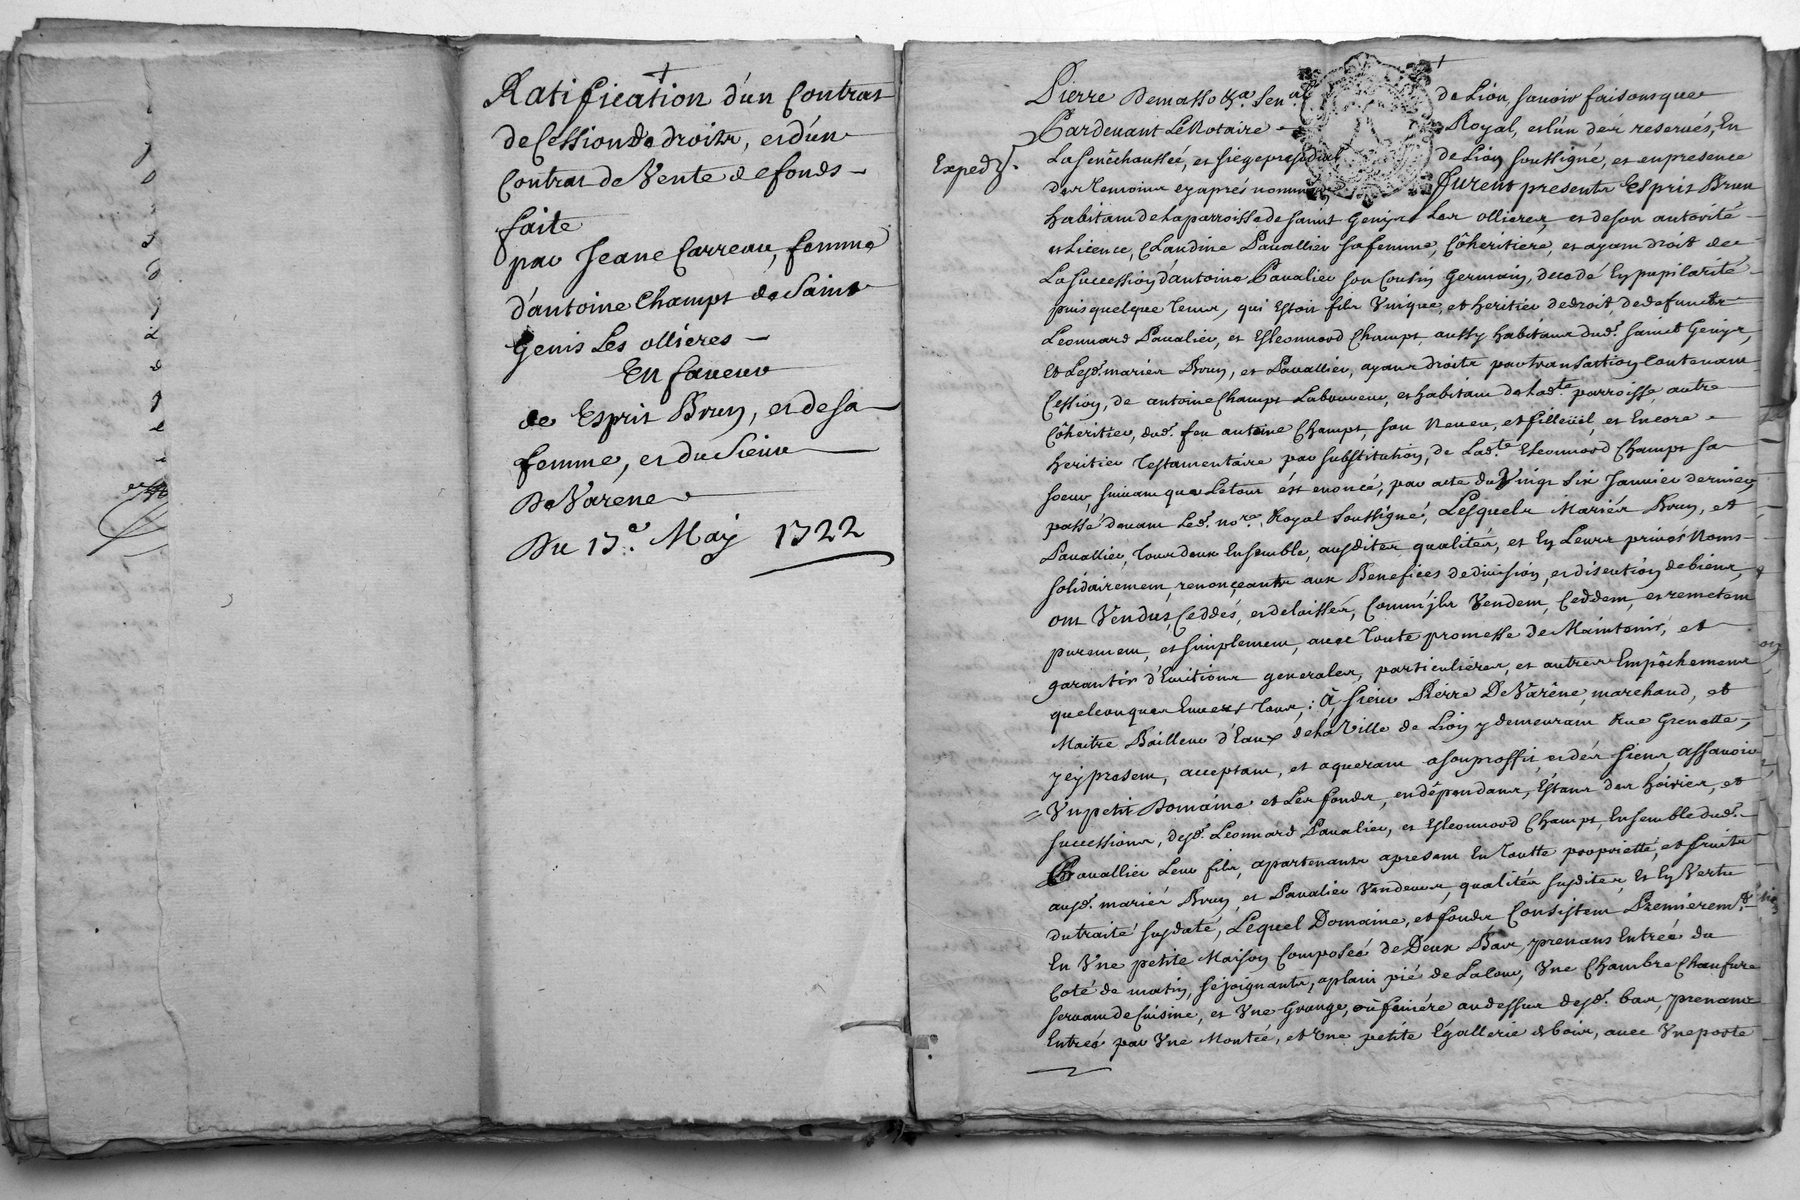 Ratification d'un Contrat
de Cession de droits, et d'un
Contrat de Vente de fonds
faite
par Jeane Carreau, femme
d'antoine Champt de Saint
Genis Les ollières
En faveur
de Esprit Brun, et de sa
femme, et du Sieur
De Varene
Du 17.e May 1722
Expedié.
Pierre Demasso &a. Sen.al de Lion savoir faisons que
Pardevant Le Notaire Royal, et l'un des reservés, En
La Senêchaussée, et siege presidial de Lion soussigné, et en presence
des temoins cy aprés nommés furent presents Esprit Brun
habitant de La parroisse de saint Genis Les ollieres, et de son autorité
et Licence, Claudine Pavallier sa femme, Côheritiere, et ayant droit de
La succession d'antoine Pavalier son Cousin Germain, decedé En pupilarité
puis quelque tems, qui Estoit fils Unique, et heritier de droit, de defuncts
Leonnard Pavalier, et Esleonnord Champt aussy habitans dud. saint Genis,
Et Lesd. mariés Brun, et Pavallier, ayans droits par transaction Contenant
Cession, de antoine Champt Laboureur, et habitant de Lad.te parroisse, autre
Côheritier, dud. feu antoine Champt, son Neveu, et filleüil, et Encore
heritier Testamentaire par substitution, de Lad.te Esleonnord Champt sa
soeur, suivant que Le tout ést enoncé, par acte du Vingt Six Janvier dernier
passé devant Led. no.re Royal soussigné, Lesquels Mariés Brun, et
Pavallier, tous deux Ensemble, ausdites qualités, et En Leurs privés Noms
solidairement, renonçeants aux Benefices de division, et discution de biens,
ont Vendus, Ceddés, et delaissés, Comm'ils Vendent, Ceddent, et remetent
purement, et simplement, avec toute promesse de Maintenir, et
garantir d'Evictions generales, particuliéres, et autres Empêchements
quelconques Envers tous, : à sieur Piérre De Varêne, marchand, et
Maitre Bailleur d'Eaux de La Ville de Lion y demeurant Rue Grenette,
y cy present, acceptant, et aquerant a son proffit, et des siens, assavoir
Un petit Domaine et Les fonds, en dêpendans, Estans des hoiries, et
successions, desd. Leonnard Pavalier, et Esleonnord Champt, Ensemble dud.
Pavallier Leur fils, apartenants apresent En toutte proprieté, et fruits
ausd. mariés Brun, et Pavalier Vendeurs, qualités susdites, Et En Vertu
du traité susdaté, Lequel Domaine, et fonds Consistent Premierem.t
En Une petite Maison Composée de Deux Bas, prenans Entrée du
Coté de matin, se joignants, a plain pié de La Cour, Une Chambre Chaufure
servant de Cuisine, et Une Grange, où feniére au dessus desd. bas, prenans
Entrée par Une Montée, et Une petite Egallerie de bois, avec Une porte